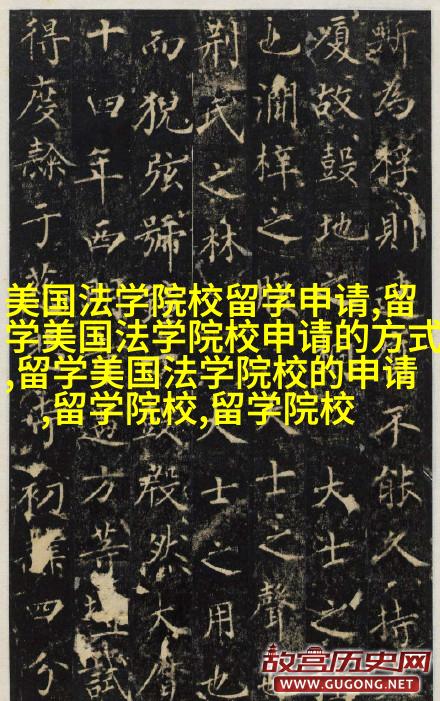 為桴則
不能久持
故鼓地
大士之
也澗梓之
士之聲
荆氏之林
士之用也
而猊弦號
殷然大
十四年西
方等
得度隸于
初隸四分
美国法学院校留学申请,留
学美国法学院校申请的方式
,留学美国法学院校的申请
,留学院校,留学院校
故宫历史网
WWW.GUGONG.NET